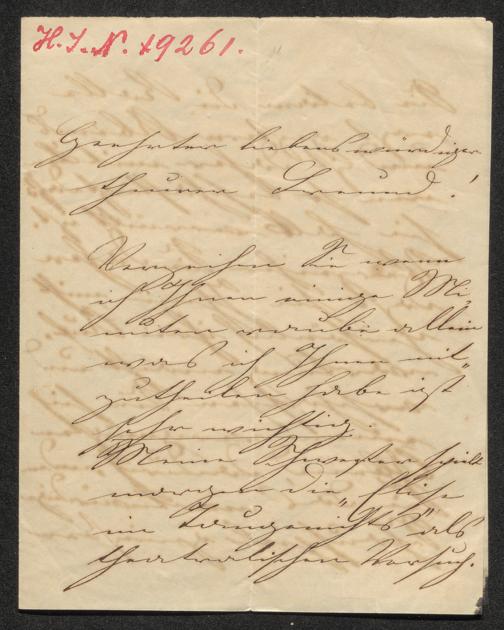 H. I. N. 19261.
Geehrter liebenswürdiger
theurer Freund!
Verzeihen Sie wenn
ich Ihnen einige Mi-
nuten raube allein
was ich Ihnen mit-
zutheilen habe ist
sehr wichtig.
Meine Schwester spielt
morgen die „Elise
im Taugenichts" als
theatralischen Versuch.